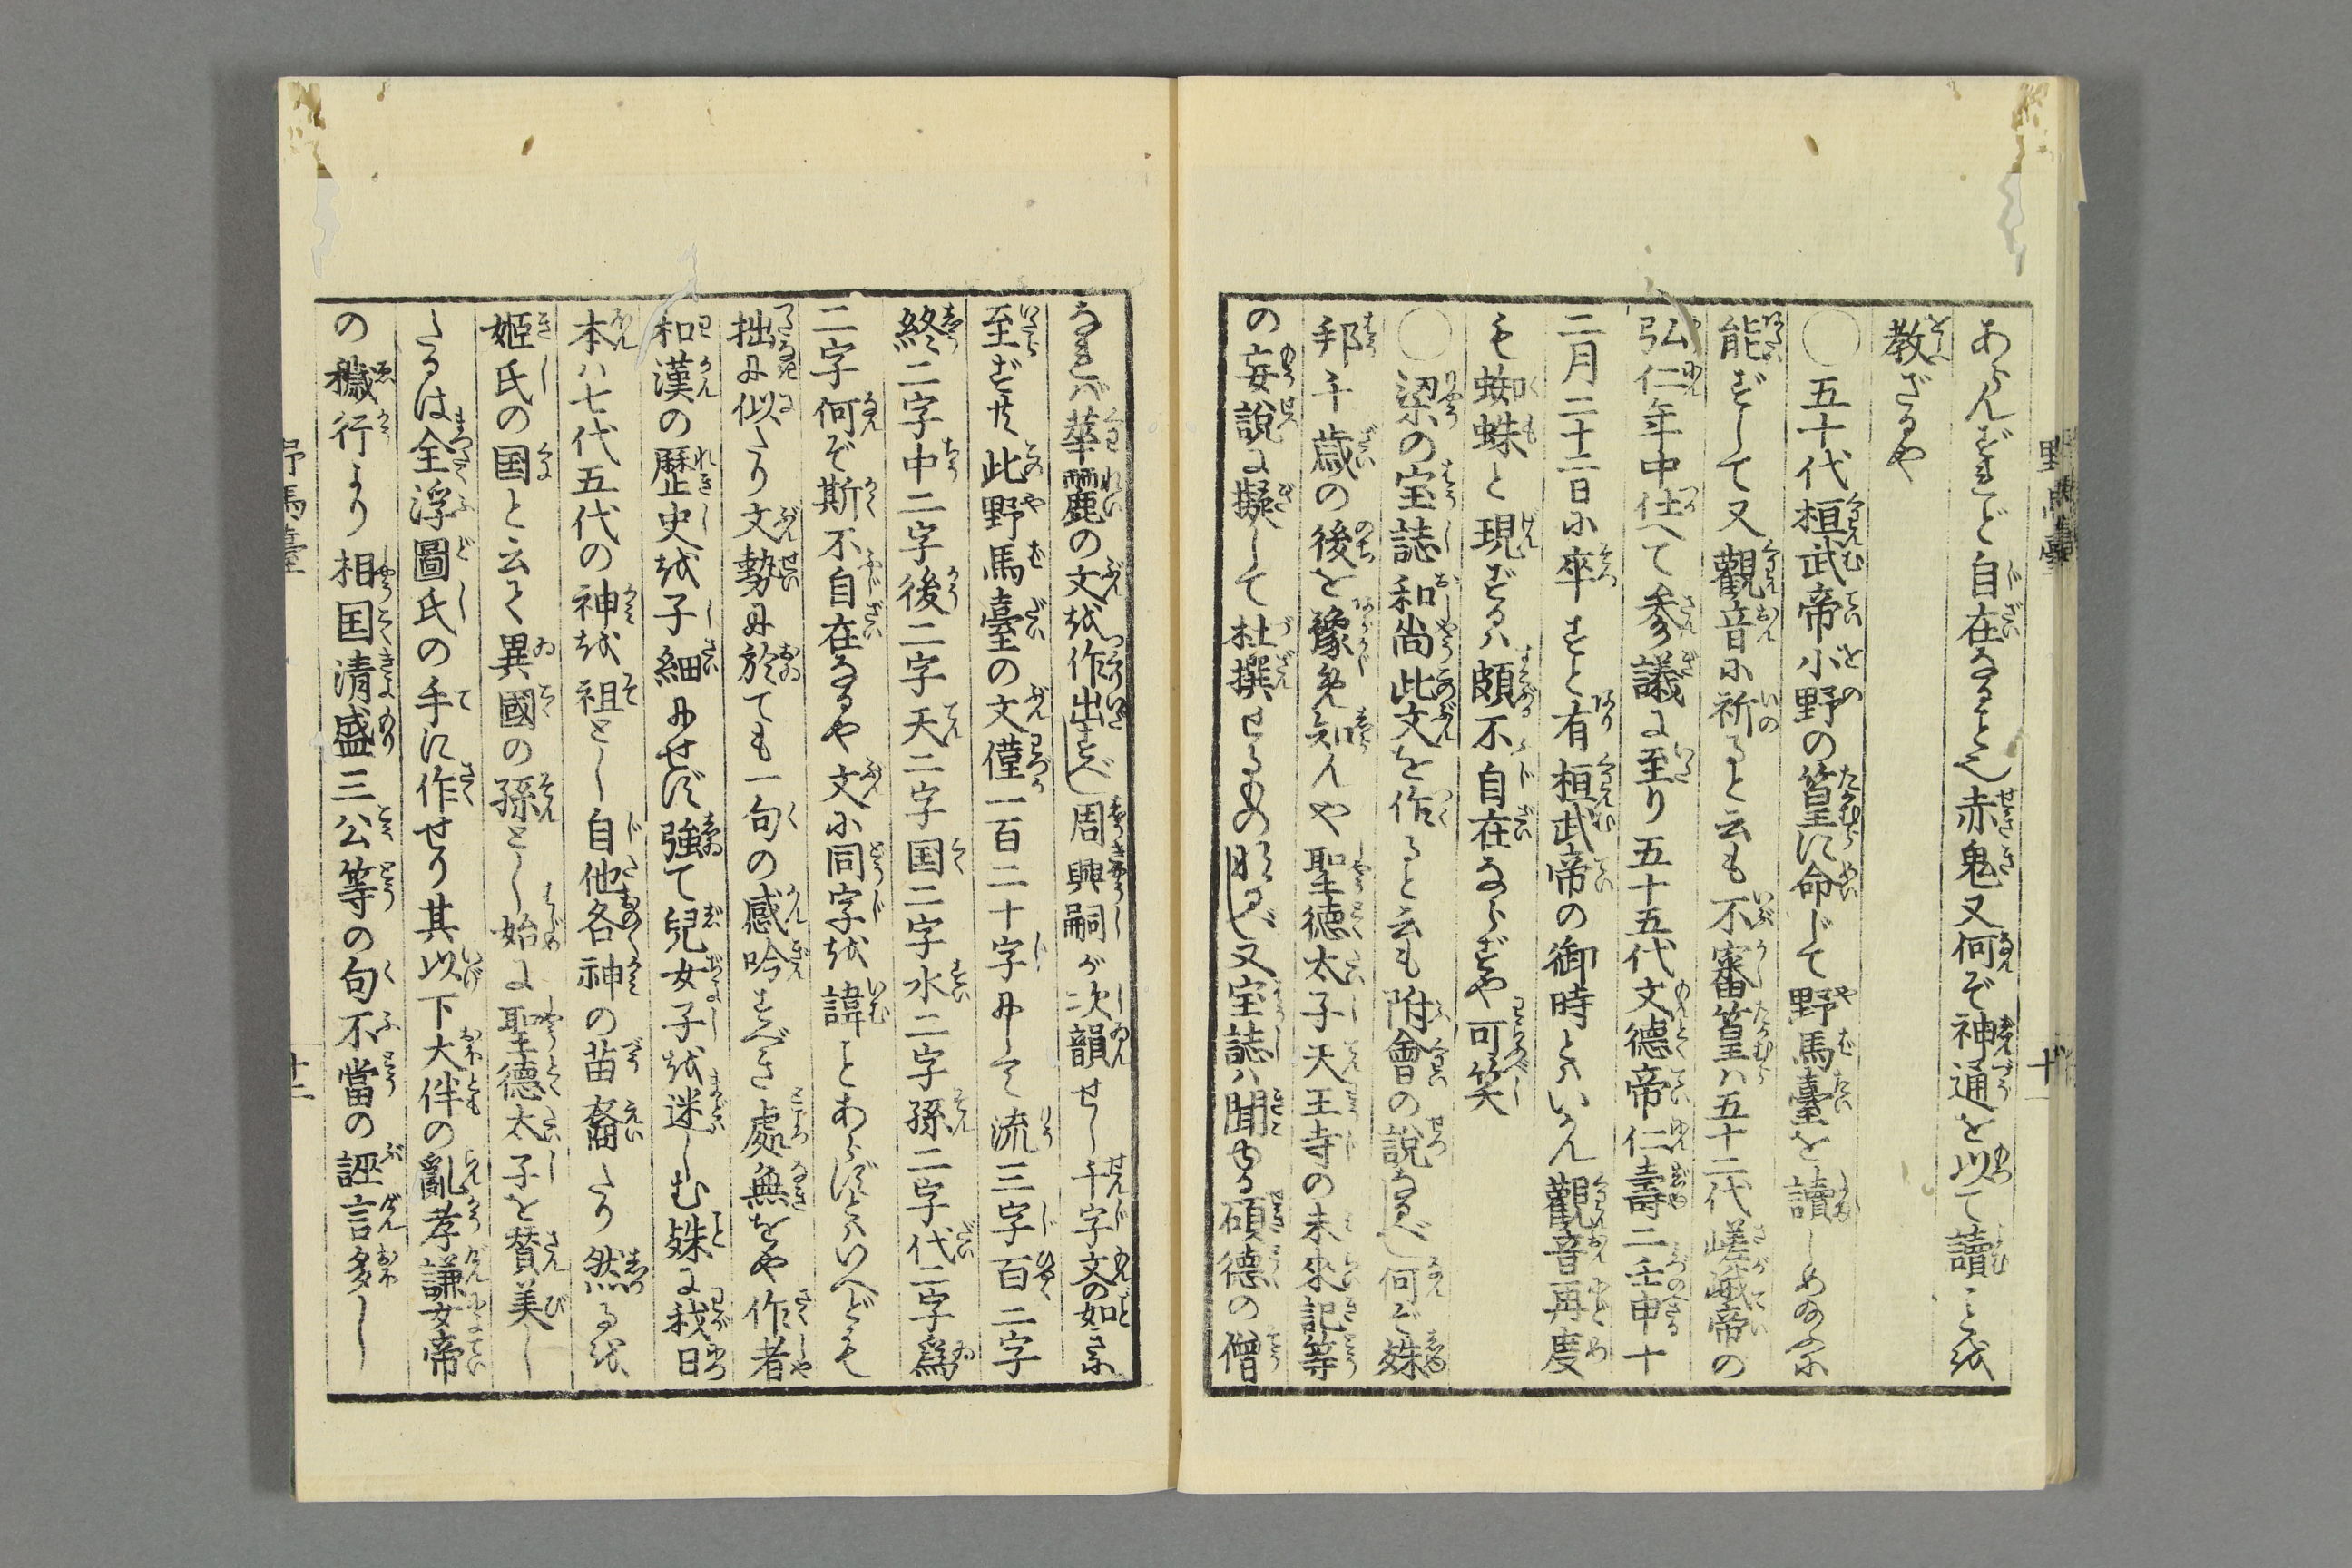 あらんざれど自在なるとも赤鬼又何ぞ神通を以て讀ことを
教ざるや
○五十代桓武帝小野の篁に命じて野馬臺を讀しめ給ふに
能ずして又觀音に祈ると云も不審篁ハ五十二代嵯峨帝の
弘仁年中仕へて参議に至り五十五代文徳帝仁壽二壬申十
二月二十二日に卒すと有桓武帝の御時とハいかん觀音再度
も蜘蛛と現ぜざるハ頗不自在ならずや可笑
○梁の宝誌和尚此文を作ると云も附會の説なるべし何ぞ殊
邦千歳の後を豫め知んや聖徳太子天王寺の未来記等
の妄説に擬して杜撰せるもの明らけし又宝誌ハ聞ゆる碩徳の僧
なれバ華麗の文を作出すべし周興嗣が次韻せし千字文の如きに
至ざれ共此野馬臺の文僅一百二十字にして流三字百二字
終二字中二字後二字天二字国二字水二字孫二字代二字爲
二字何ぞ斯不自在なるや文に同字を諱とにあらずといへども
拙に似たり文勢に於ても一句の感吟すべき處無をや作者
和漢の歴史を子細にせず強て兒女子を迷しむ殊に我日
本ハ七代五代の神を祖とし自他各神の苗裔たり然るを
姫氏の国と云て異國の孫とし始に聖徳太子を賛美し
たるは全浮圖氏の手に作せり其以下大伴の亂孝謙女帝
の穢行より相国清盛三公等の句不當の誣言多し
野馬臺
十一
野馬臺
十二